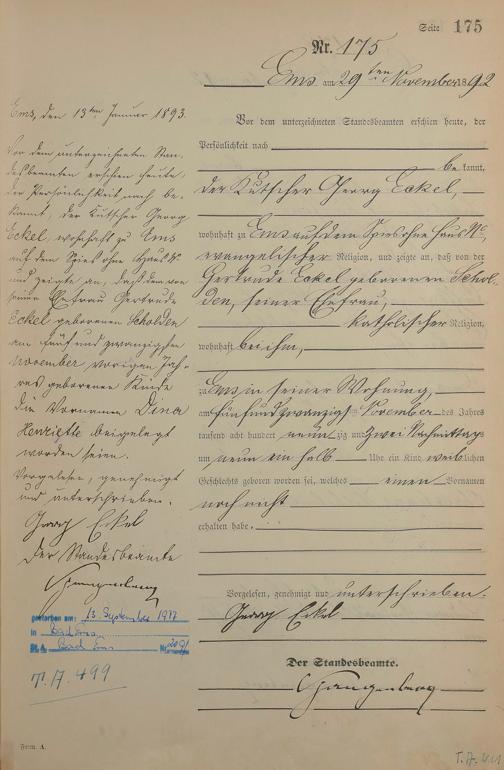 Seite 175
Nr. 175
Ems am 29ten November 1892
Vor dem unterzeichneten Standesbeamten erschien heute, der
Persönlichkeit nach
bekannt,
der Kutscher Georg Eckel,
wohnhaft zu Ems auf dem Spies ohne Haus No,
evangelischer Religion, und zeigte an, daß von der
Gertrude Eckel geborenen Schol-
den, seiner Ehefrau,
katholischer Religion,
wohnhaft bei ihm,
zu Ems in seiner Wohnung,
am fünfundzwanzigsten November des Jahres
tausend acht hundert neunzig und zwei Nachmittags
um neun ein halb Uhr ein Kind weiblichen
Geschlechts geboren worden sei, welches einen Vornamen
noch nicht
erhalten habe.
Vorgelesen, genehmigt und unterschrieben.
Georg Eckel
Der Standesbeamte.
Spangenberg
Ems, den 13ten Januar 1893.
Vor dem unterzeichneten Stan-
desbeamten erschien heute,
der Persönlichkeit nach be-
kannt, der Kutscher Georg
Eckel, wohnhaft zu Ems
auf dem Spies ohne Haus No
und zeigte an, daß dem von
seiner Ehefrau Gertrude
Eckel geborenen Scholden
am fünf und zwanzigsten
November vorigen Jah-
res geborenen Kinde
die Vornamen Dina
Henriette beigelegt
worden seien.
Vorgelesen, genehmigt
und unterschrieben.
Georg Eckel
Der Standesbeamte
Spangenberg
gestorben am: 13. September 1977
in Bad Ems
St. A. Bad Ems Nr.
T. A. 499
Form. A.